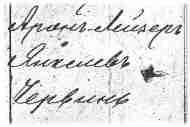 Аронъ Лейзеръ
Янкелевъ
Червинъ